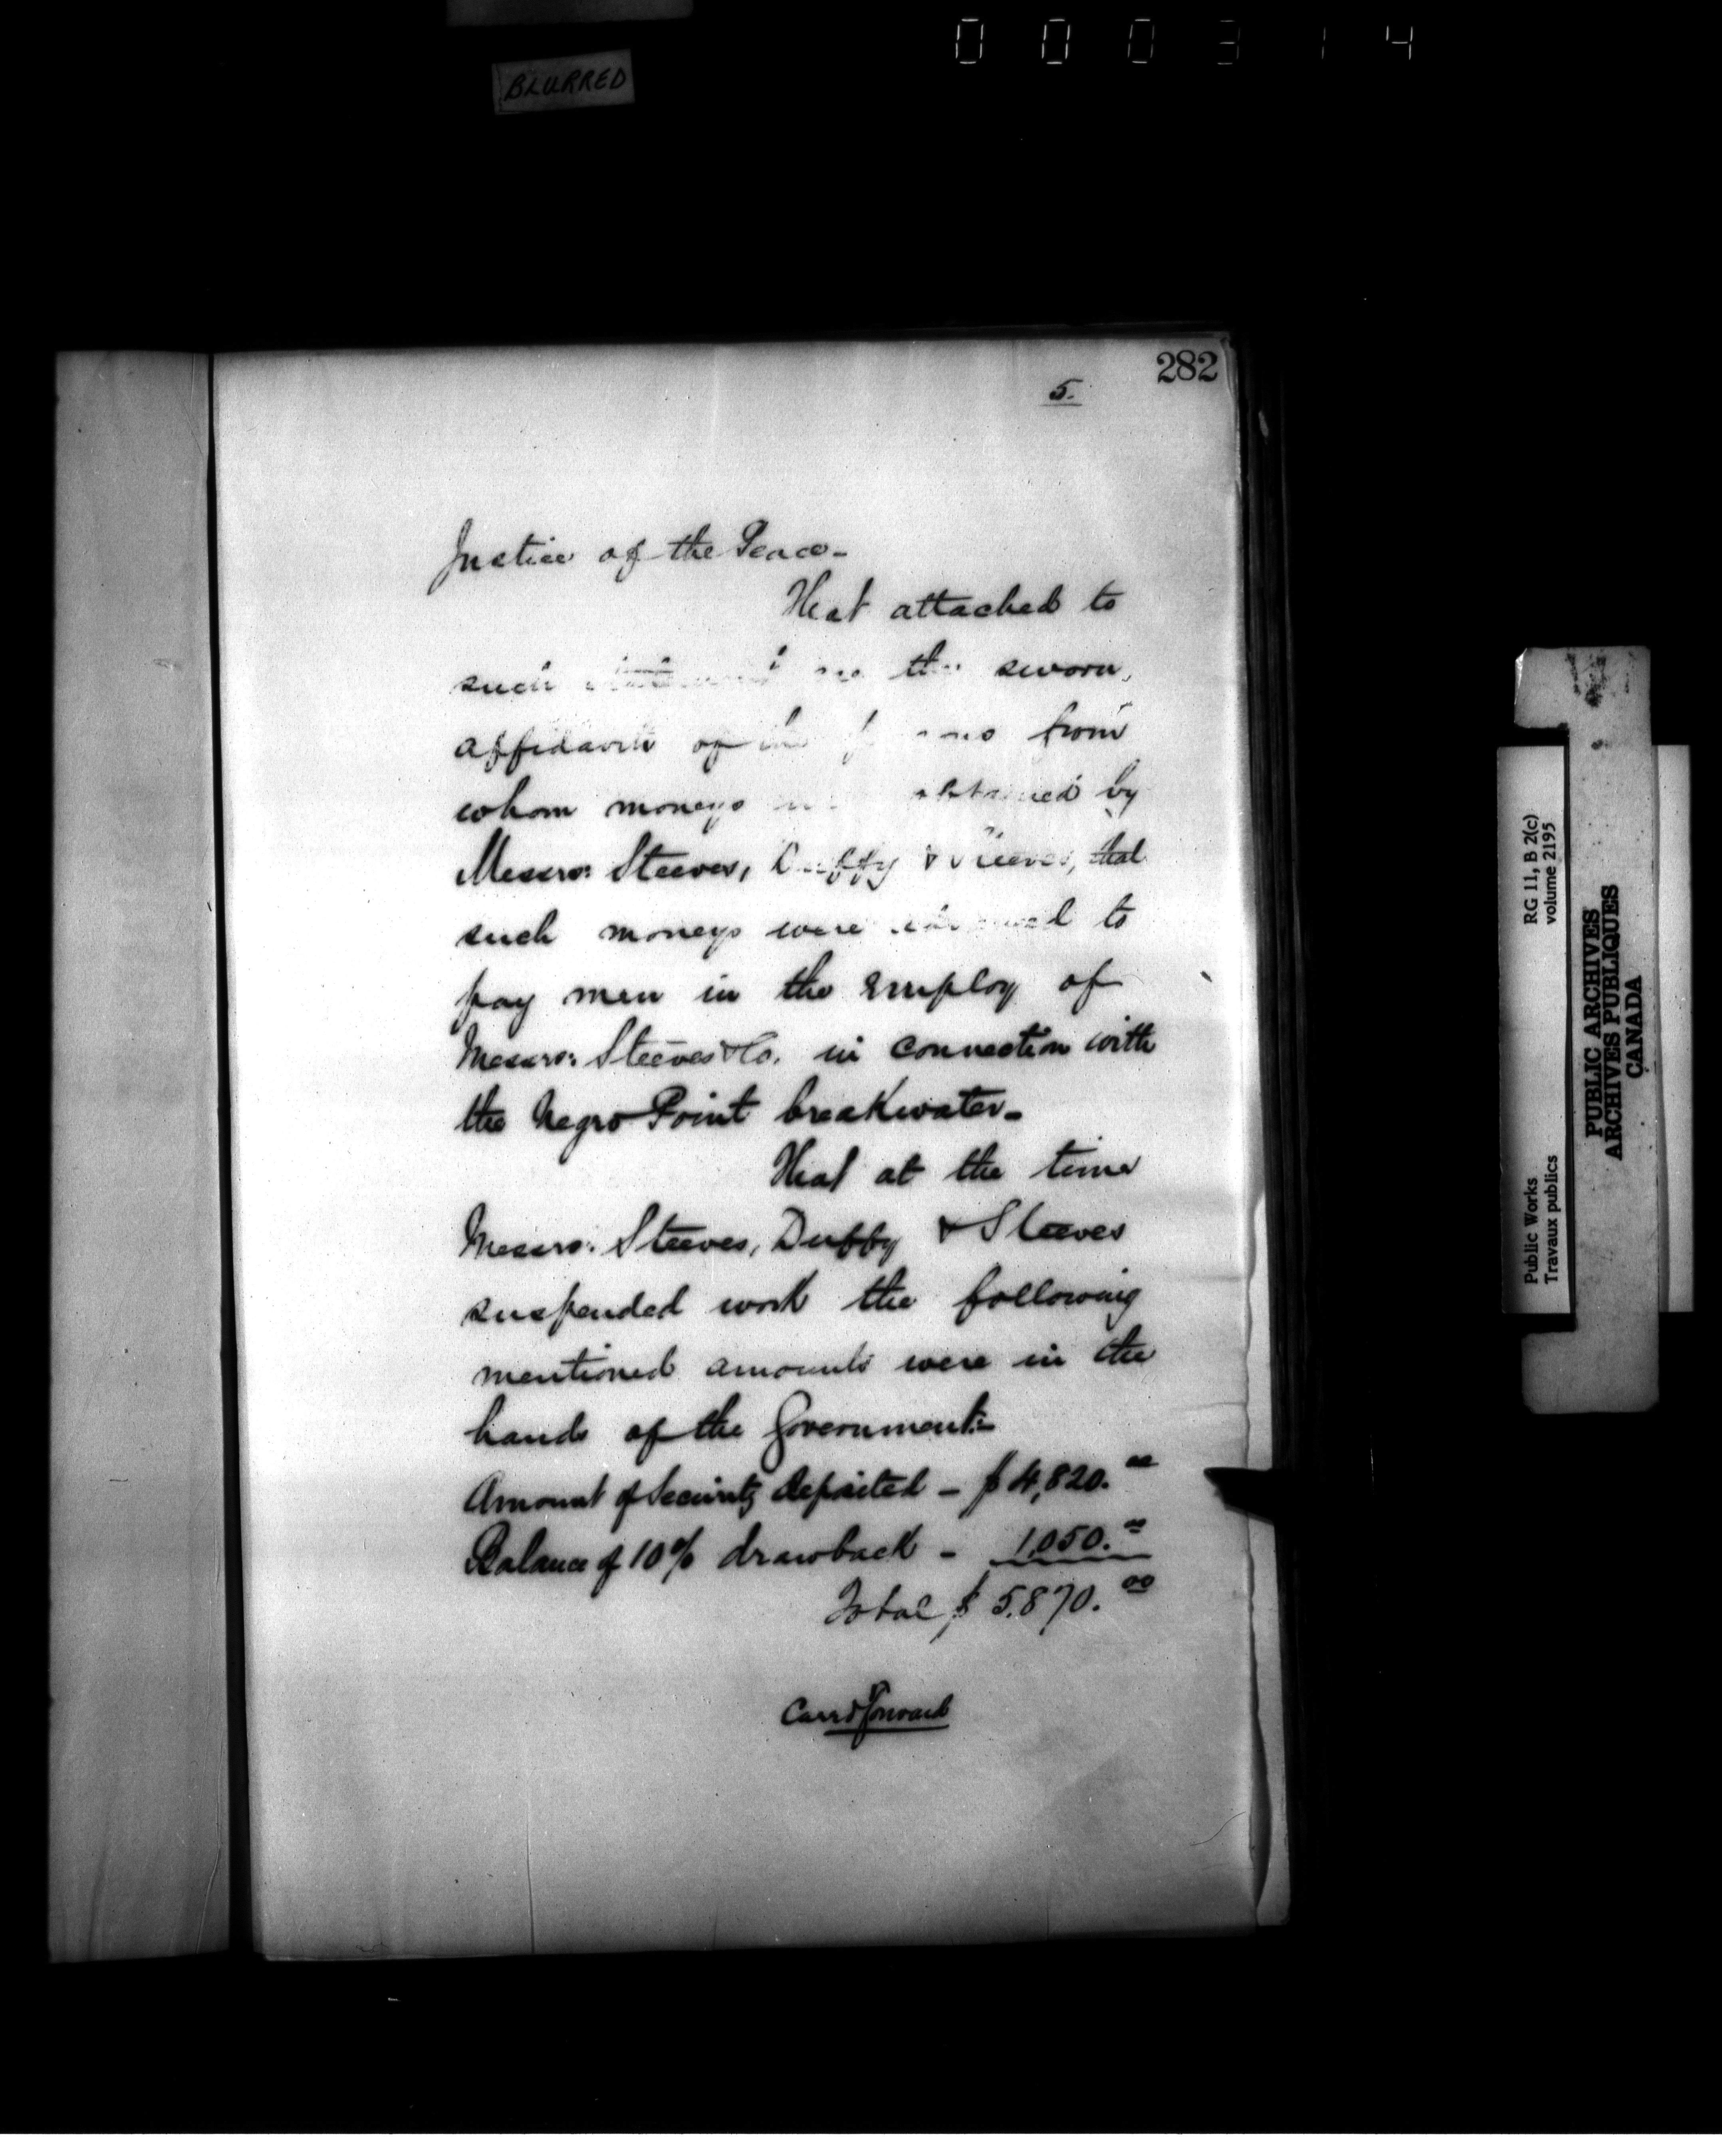 000314
BLURRED
282
5.
Justice of the Peace-
That attached to
such the sworn
affidavits of the from
whom moneys obtained by
Messrs: Steeves, Duffy & Steeves, that
such moneys were to
pay men in the employ of
Messrs: Steeves & Co. in connection with
the Negro Point breakwater-
That at the time
Messrs: Steeves, Duffy & Steeves
suspended work the following
mentioned amounts were in the
hands of the Government:-
Amount of Security deposited - $4,820.00
Balance of 10% drawback - 1,050.00
Total $5,870.00
Carrd Forward
Public Works RG 11, B 2(c)
Travaux publics volume 2195
PUBLIC ARCHIVES
ARCHIVES PUBLIQUES
CANADA